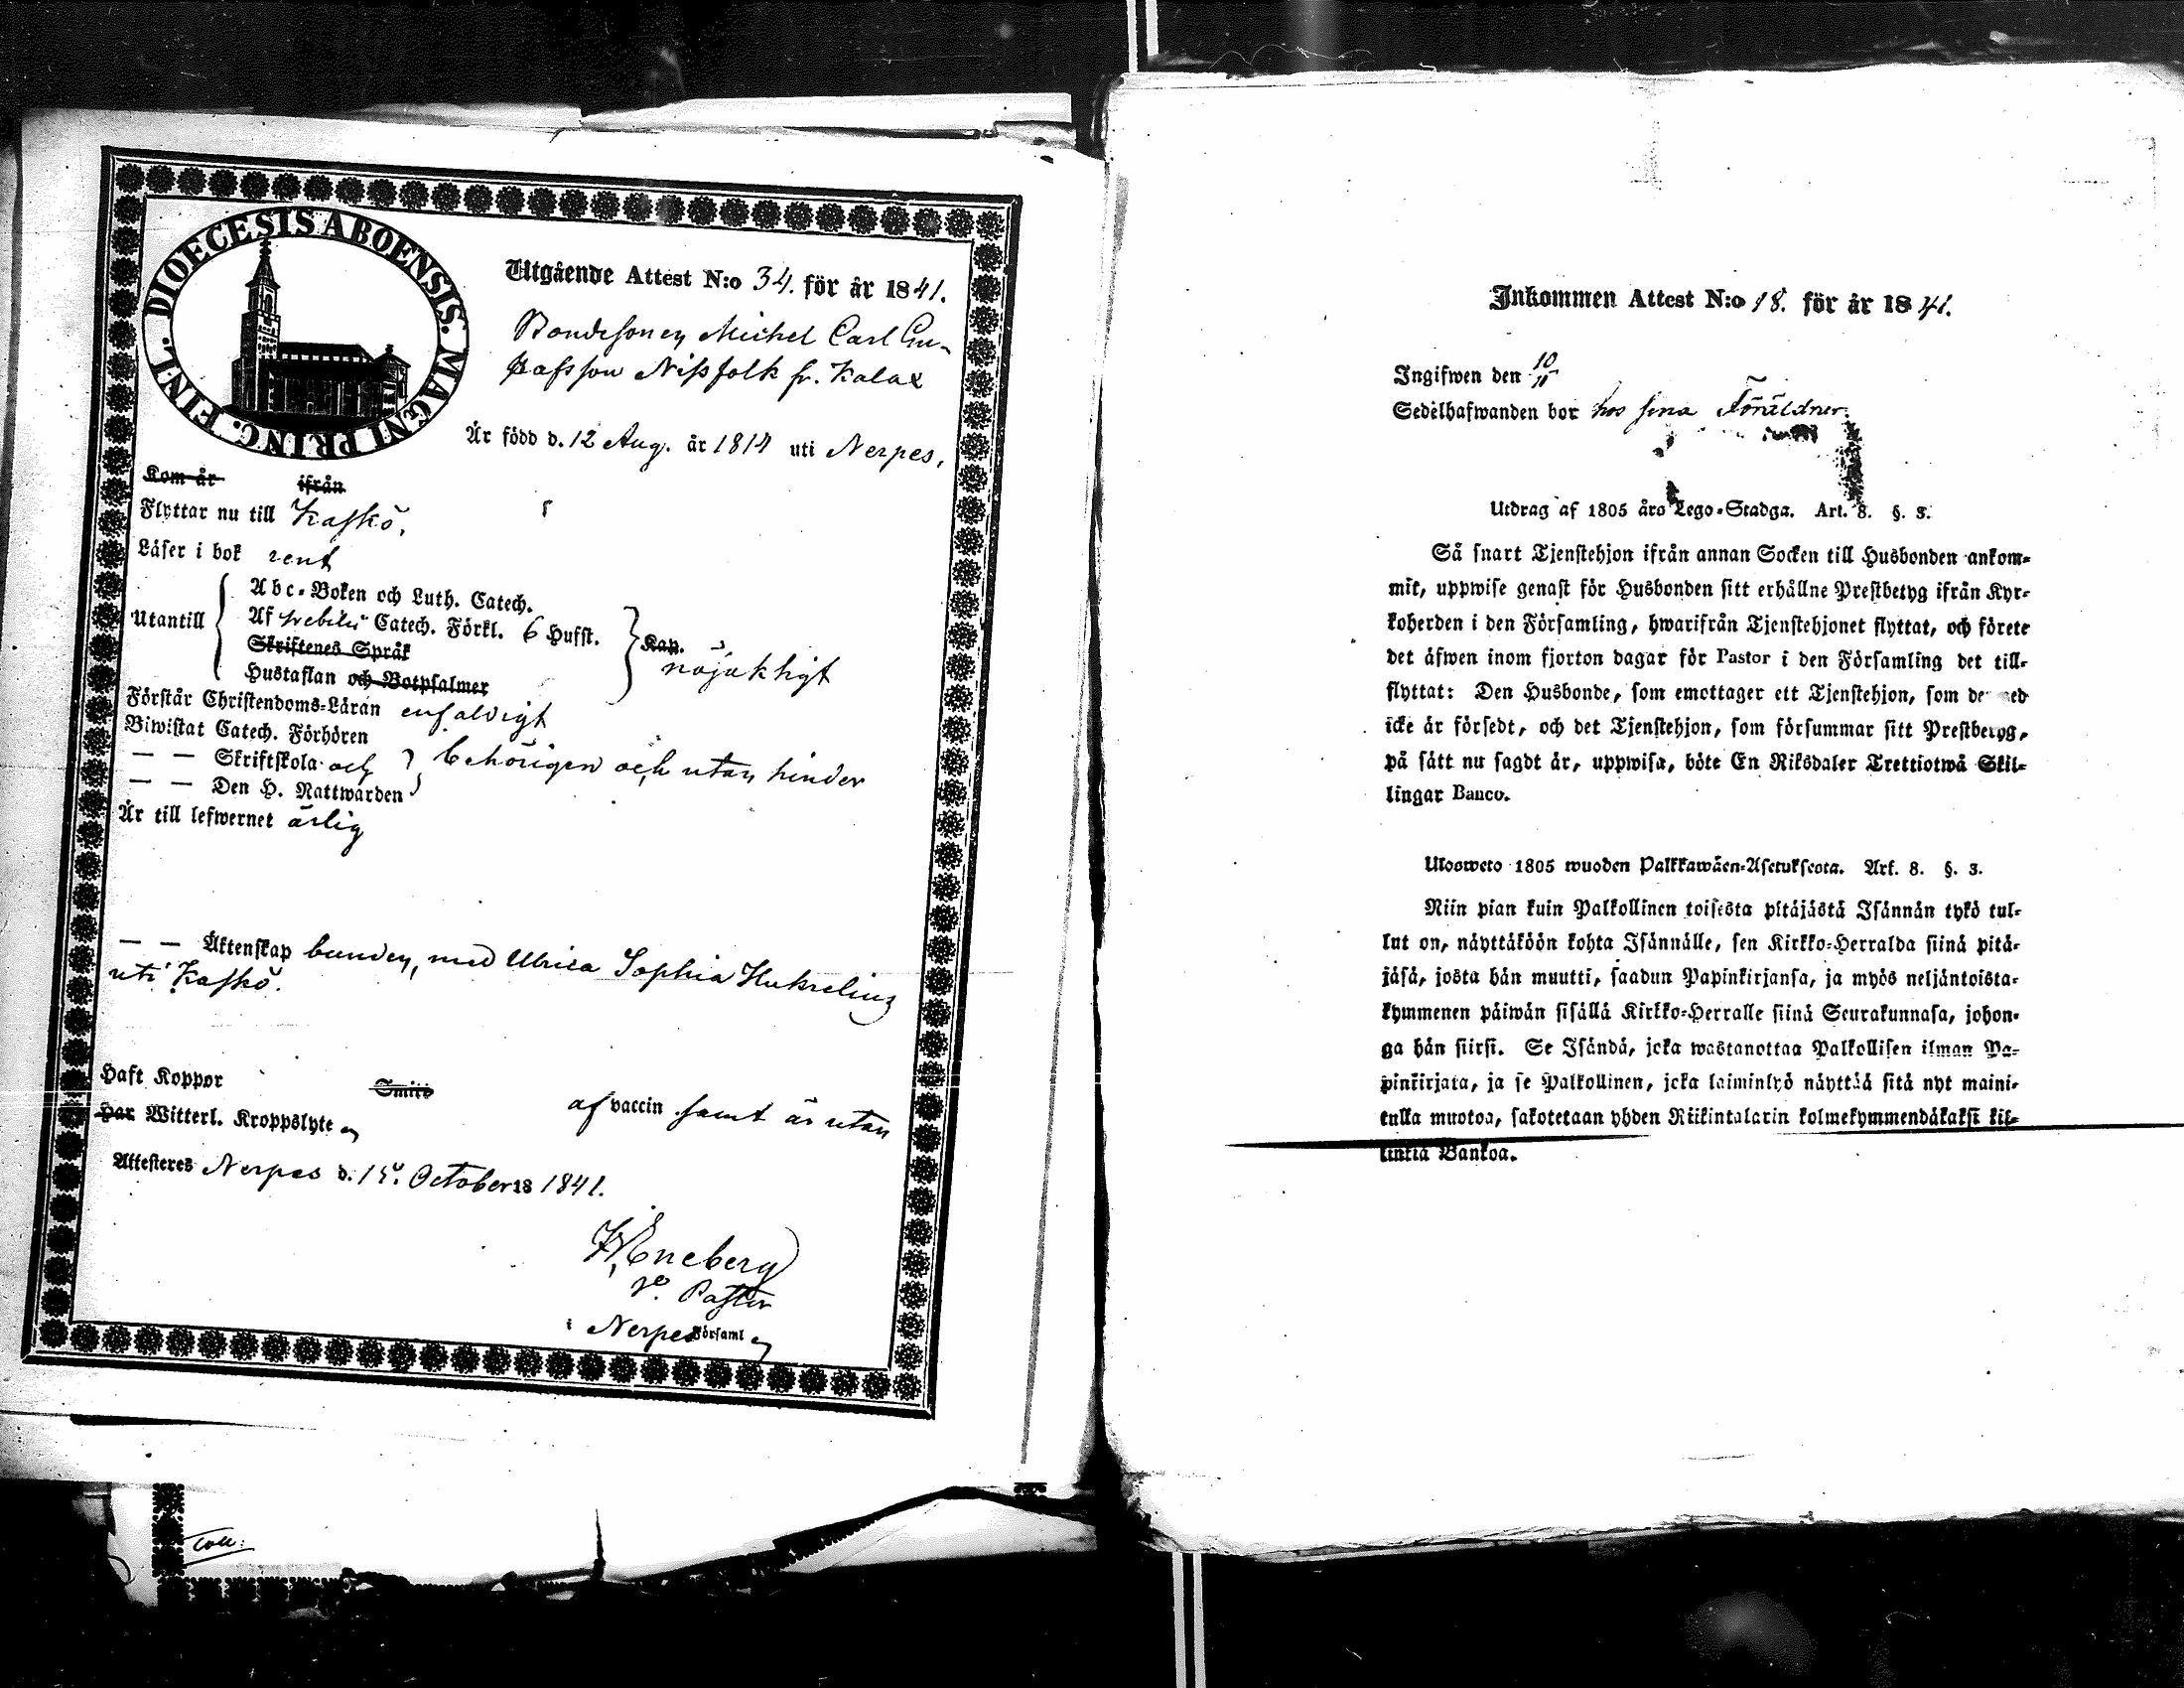 DIOECESIS ABOENSIS. MAGNI PRINC. FINL.
Utgående Attest N:o 34. för år 1841.
Bondesonen Michel Carl Gu-
stafsson Nissfolk fr. Kalax
Är född d. 12 Aug. år 1814 uti Nerpes.
Kom år ifrån
Flyttar nu till Kaskö.
Läser i bok rent
Utantill
Abc-Boken och Luth. Catech.
Af Svebilii Catech. Förkl. 6 Hufst.
Skriftenes Språk
Hustaflan och Botpsalmer
Kan.
nöjaktigt
Förstår Christendoms-Läran enfaldigt
Biwistat Catech. Förhören
— — Skriftskola och
— — Den H. Nattwarden
behörigen och utan hinder
Är till lefwernet ärlig
— — Äktenskap bunden, med Ulrica Sophia
uti Kaskö.
Haft Koppor
af vaccin samt är utan
Har Witterl. Kroppslyte
Attesteres Nerpes d. 15. October 18 1841.
Eneberg
v. Pastor
i Nerpes Församl
Coll:
Inkommen Attest N:o 18. för år 1841.
Ingifwen den 10/11
Sedelhafwanden bor hos sina Föräldrar.
Utdrag af 1805 års Lego-Stadga. Art. 8. §. 3.
Så snart Tjenstehjon ifrån annan Socken till Husbonden ankom-
mit, uppwise genast för Husbonden sitt erhållne Prestbetyg ifrån Kyr-
koherden i den Församling, hwarifrån Tjenstehjonet flyttat, och förete
det äfwen inom fjorton dagar för Pastor i den Församling det till-
flyttat: Den Husbonde, som emottager ett Tjenstehjon, som der med
icke är försedt, och det Tjenstehjon, som försummar sitt Prestbetyg,
på sätt nu sagdt är, uppwisa, böte En Riksdaler Trettiotwå Skil-
lingar Banco.
Ulosweto 1805 wuoden Palkkawäen-Asetuksesta. Art. 8. §. 3.
Niin pian kuin Palkollinen toisesta pitäjästä Isännän tykö tul-
lut on, näyttäköön kohta Isännälle, sen Kirkko-Herralda siinä pitä-
jäsä, josta hän muutti, saadun Papinkirjansa, ja myös neljäntoista-
kymmenen päiwän sisällä Kirkko-Herralle siinä Seurakunnasa, johon-
ga hän siirsi. Se Isändä, joka wastanottaa Palkollisen ilman Pa-
pinkirjata, ja se Palkollinen, joka laiminlyö näyttää sitä nyt maini-
tulla muotoa, sakotetaan yhden Riikintalarin kolmekymmendäkaksi kil-
linkiä Bankoa.